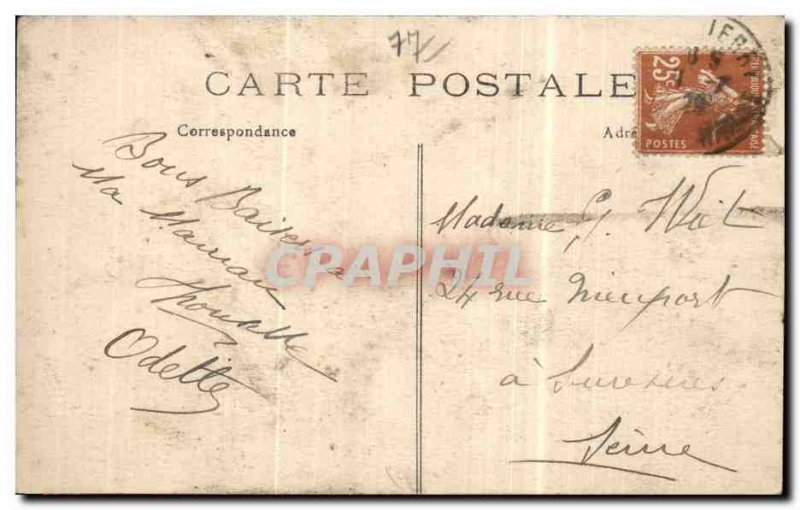 77
CARTE POSTALE
Correspondance
Adre
25c
POSTES
Bons Baisers a
Ma Maman
Odette
Madame G. Wit
24 rue Nieuport
à Suresnes
Seine
CPAPHIL